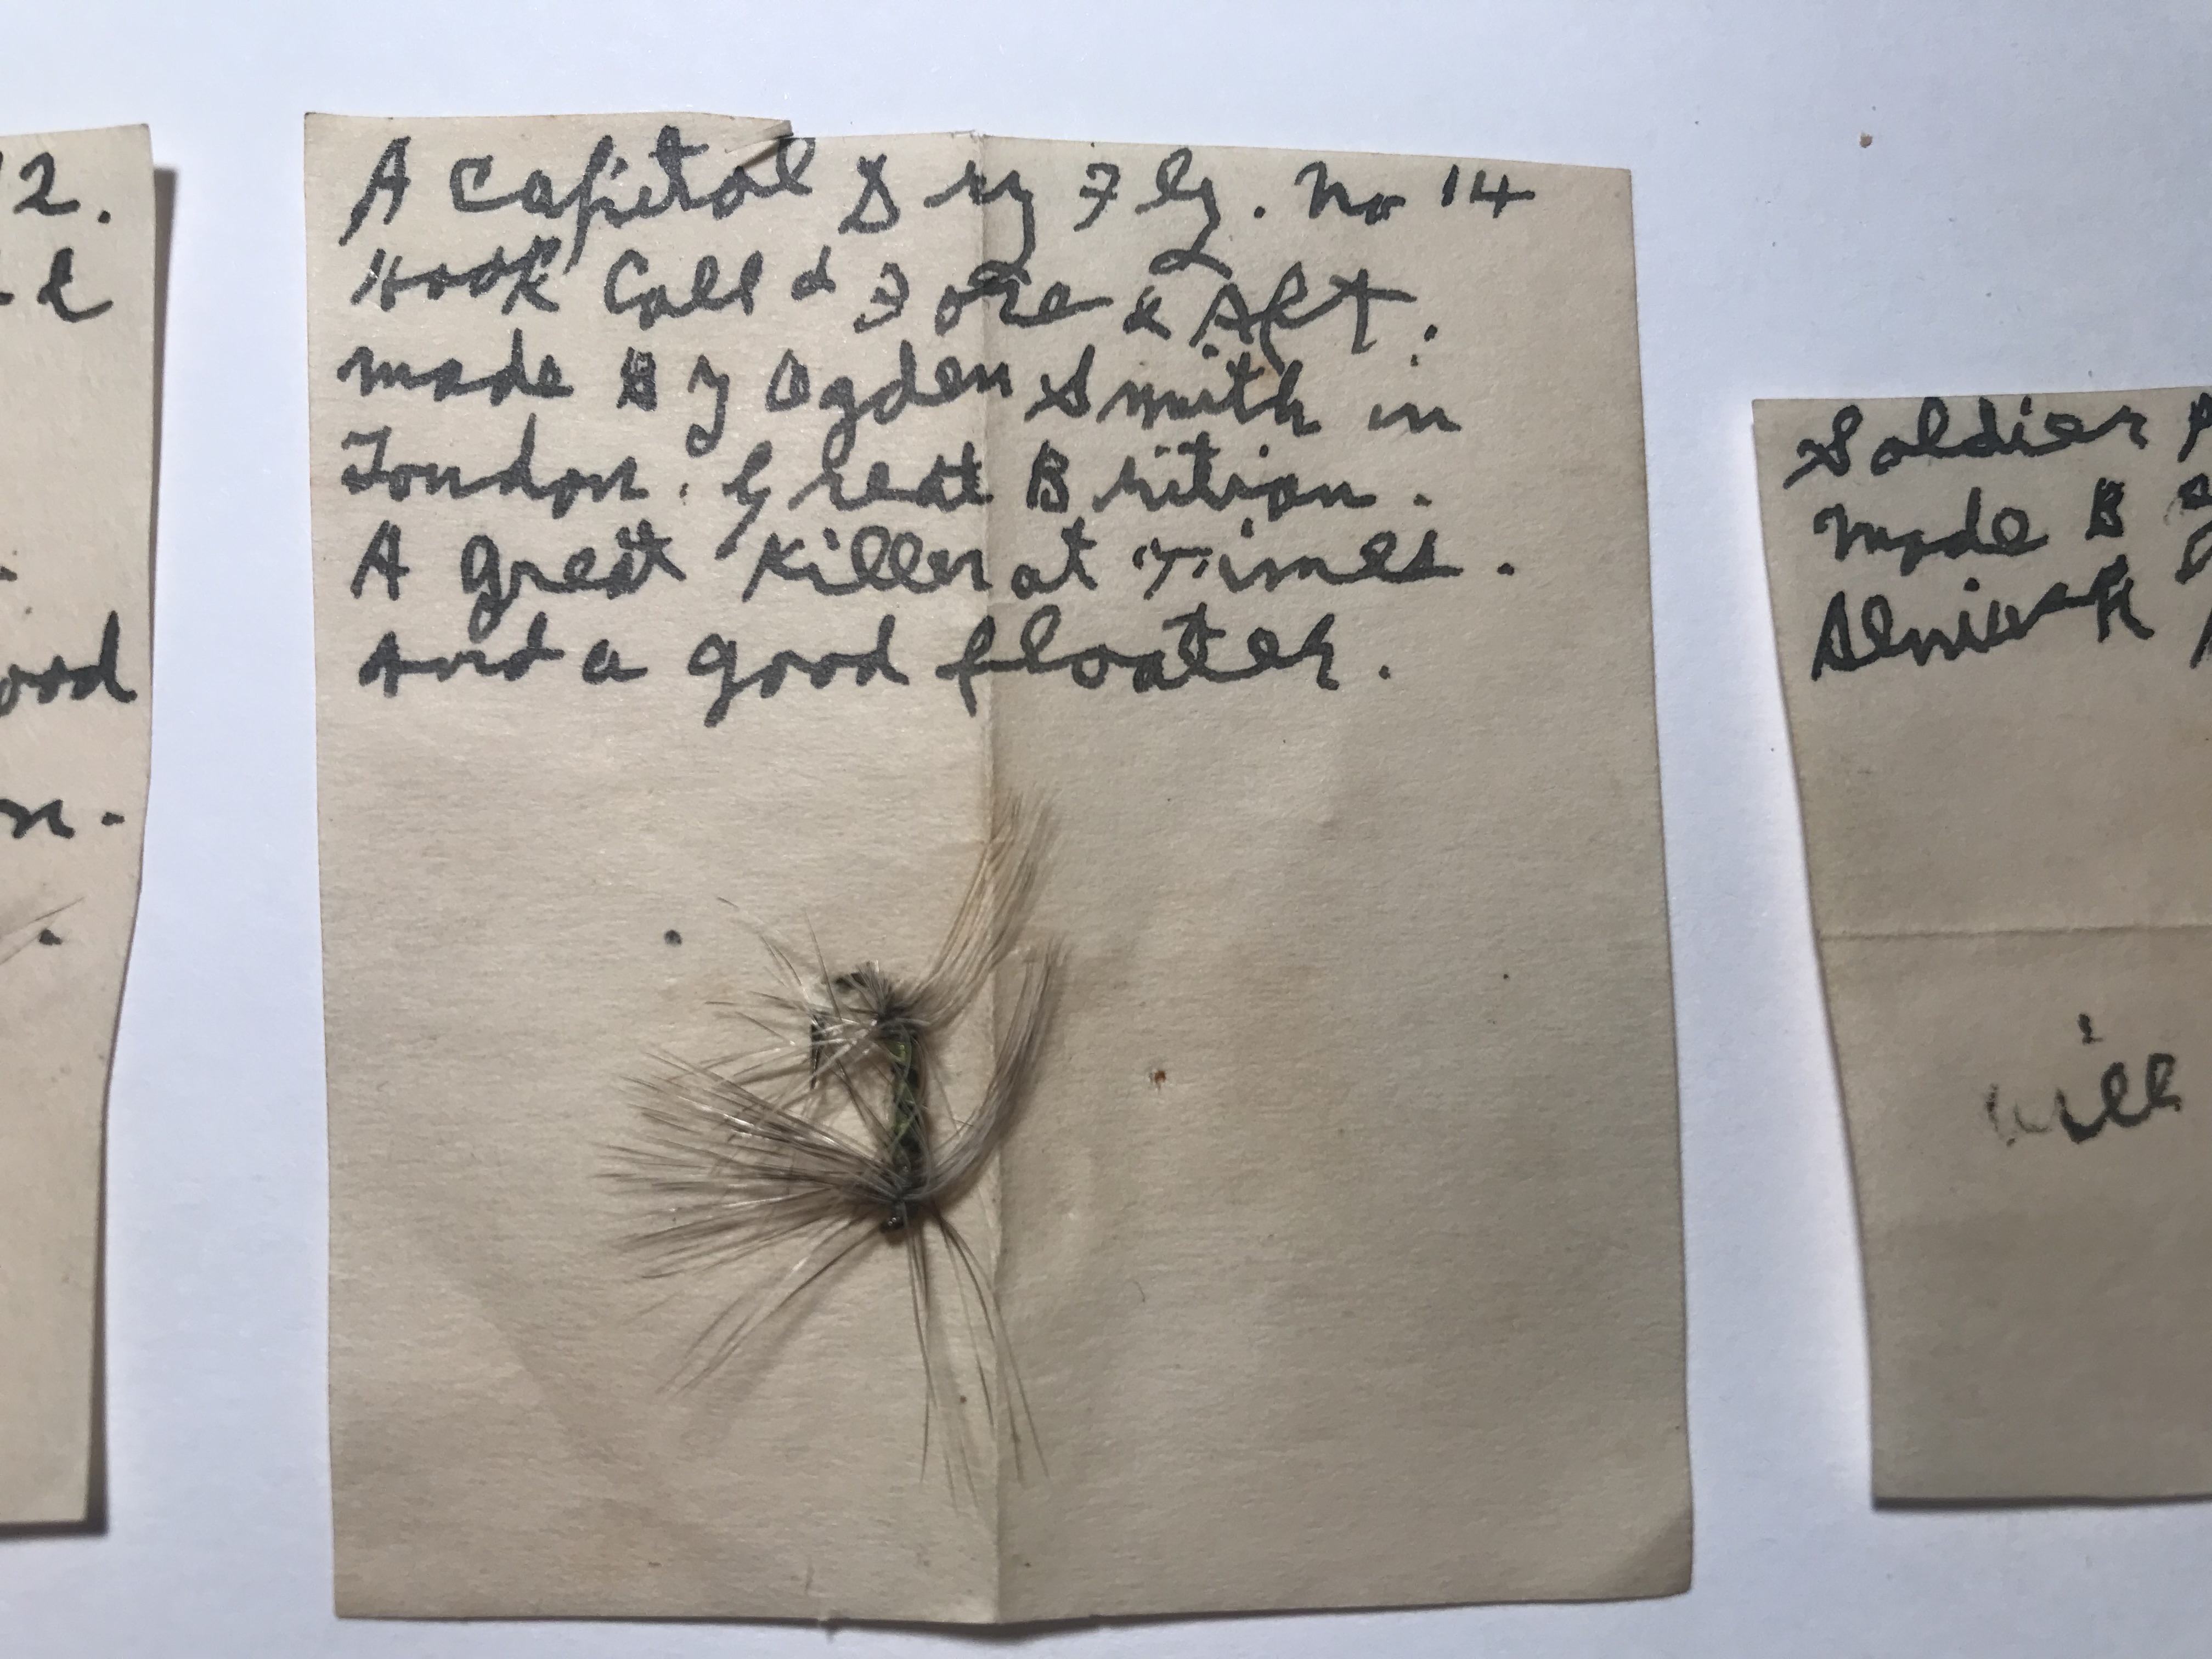 12.
ood
A Capitol Dry Fly. No 14
Hook Calld Fore & Aft.
made By Ogden Smith in
London. Great Britian.
A great Killer at Times.
and a good floater.
Soldier
Made B
Alnwick
will